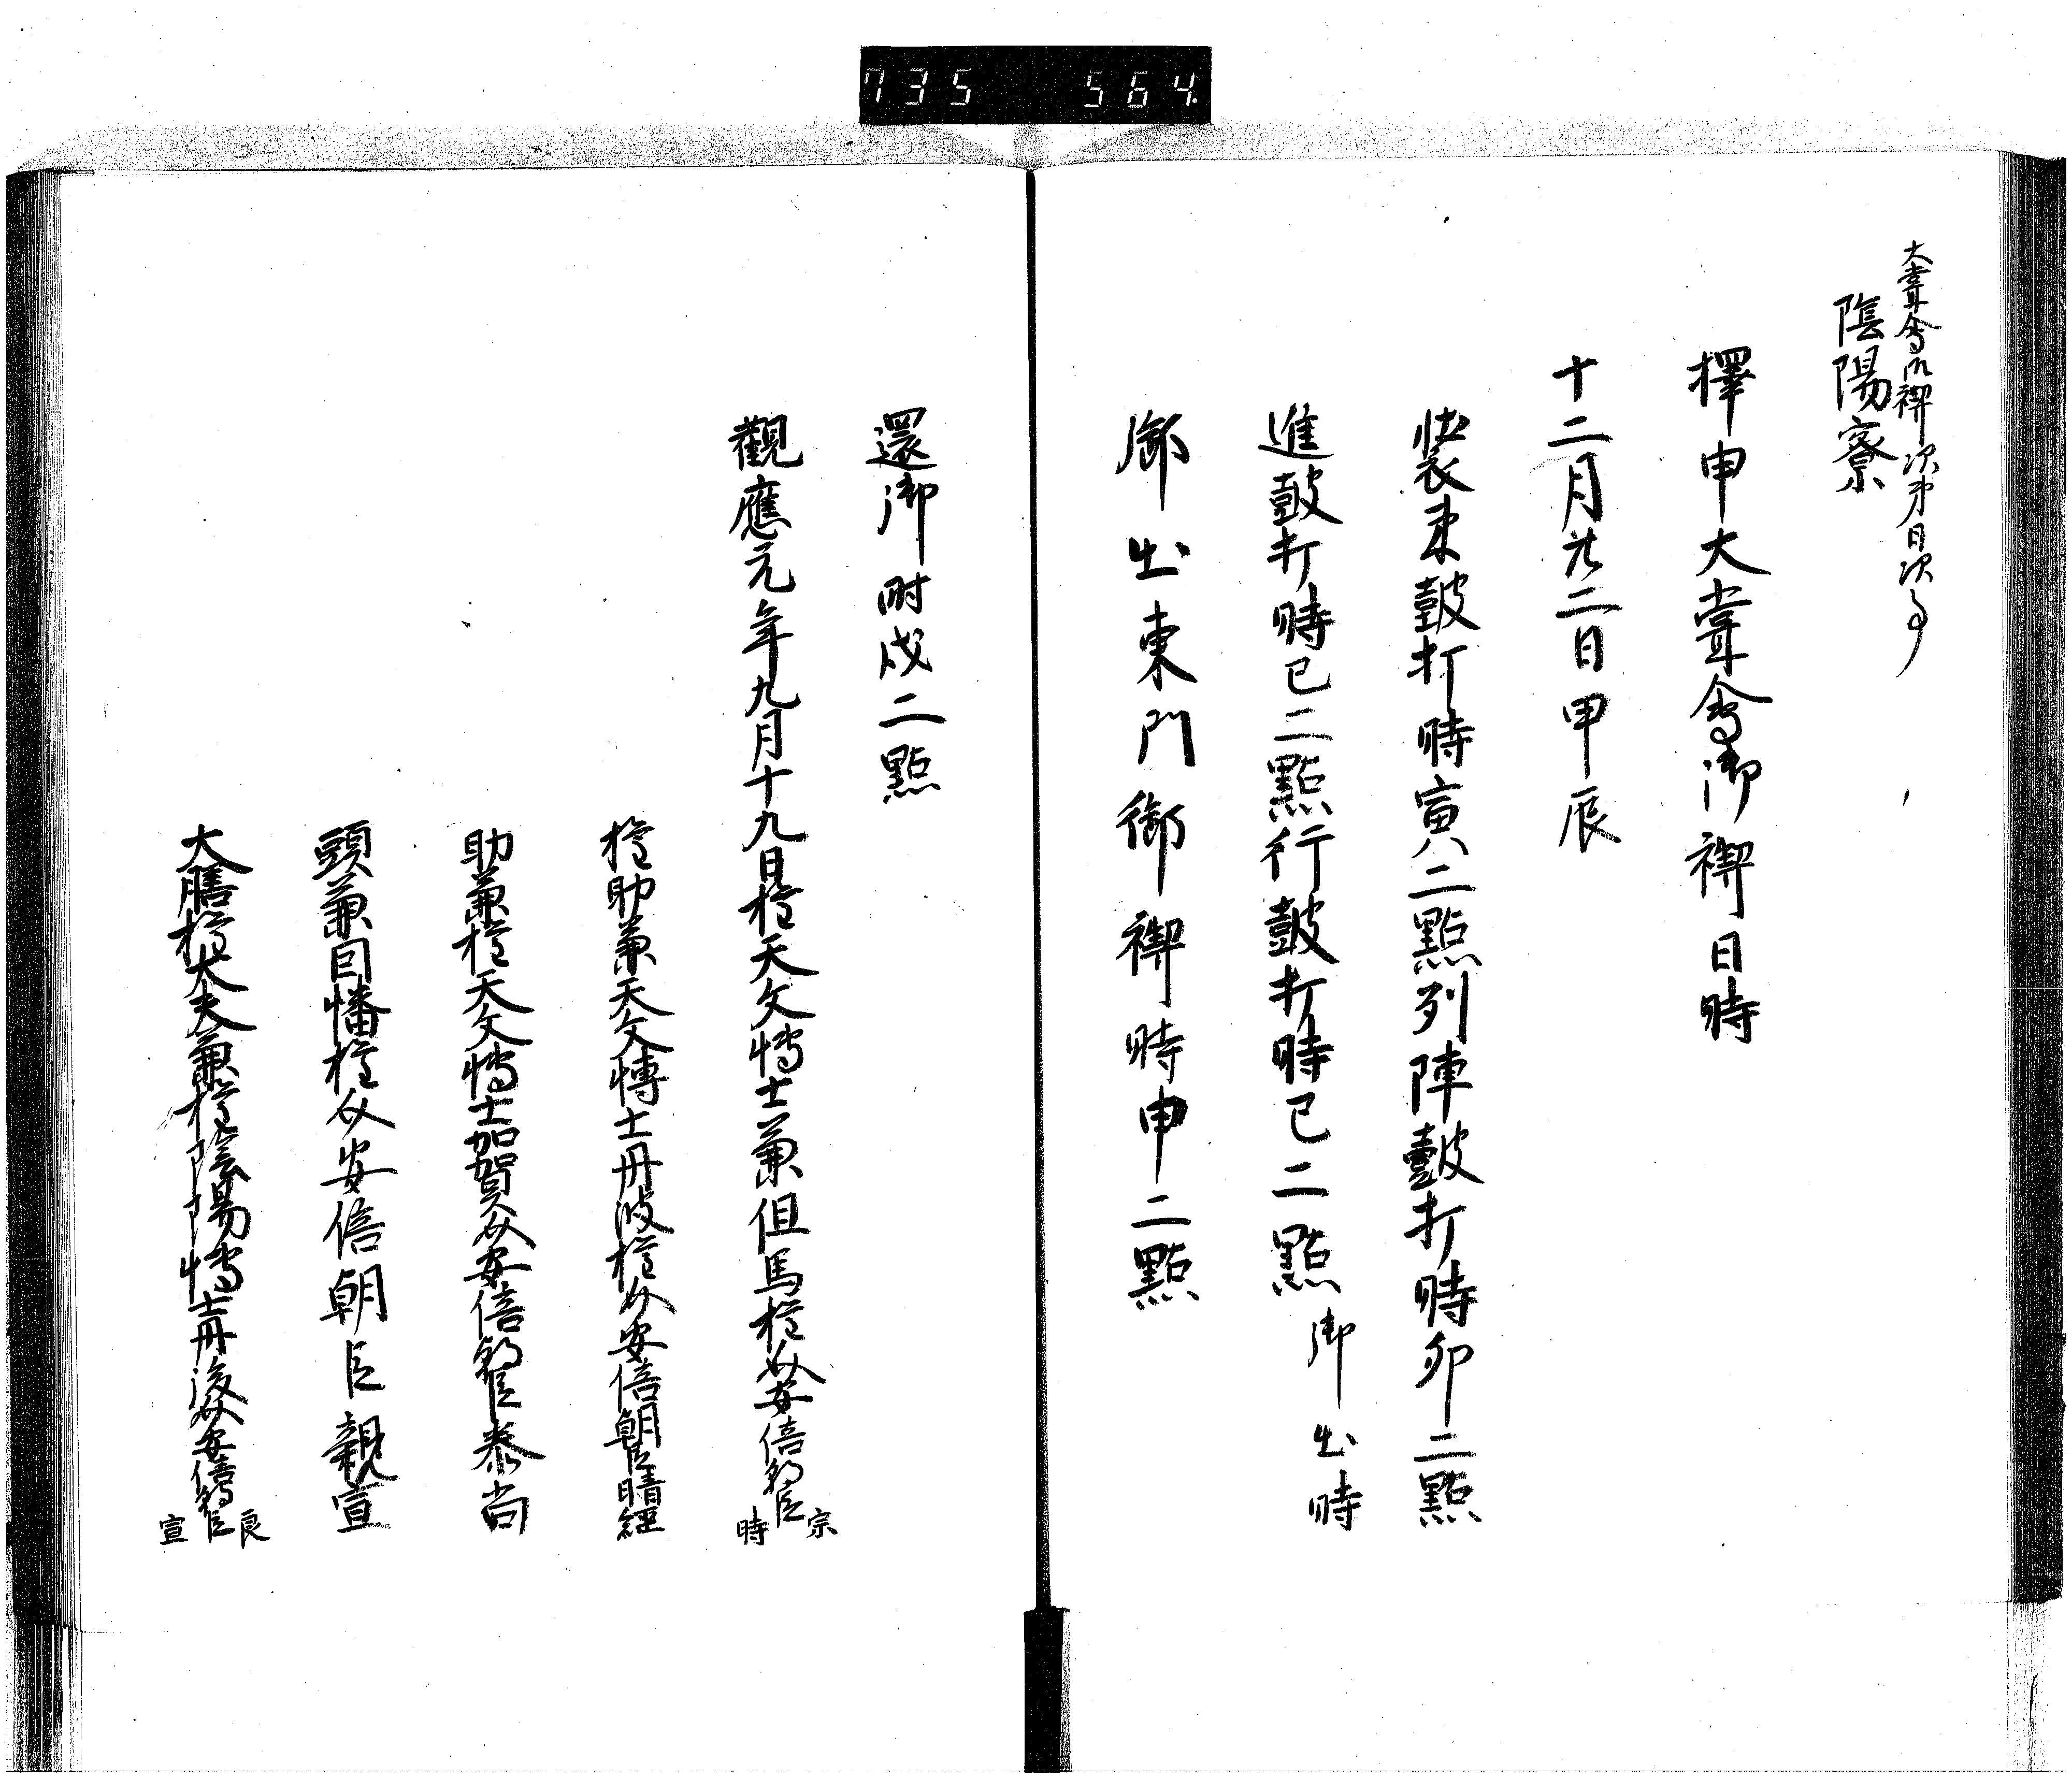 735 564
大嘗會御禊次第日次事
陰陽寮
擇申大嘗會御禊日時
十二月廿二日甲辰
裝束皷打時寅八二點列陣皷打時卯二點
進皷打時巳二點行皷打時巳二點御出時
御出東門御禊時申二點
還御時戌二點
觀應元年九月十九日權天文博士兼但馬權介安倍朝臣宗時
權助兼天文博士丹波權介安倍朝臣晴經
助兼權天文博士加賀介安倍朝臣泰尚
頭兼因幡權介安倍朝臣親宣
大膳權大夫兼權陰陽博士丹後介安倍朝臣良宣